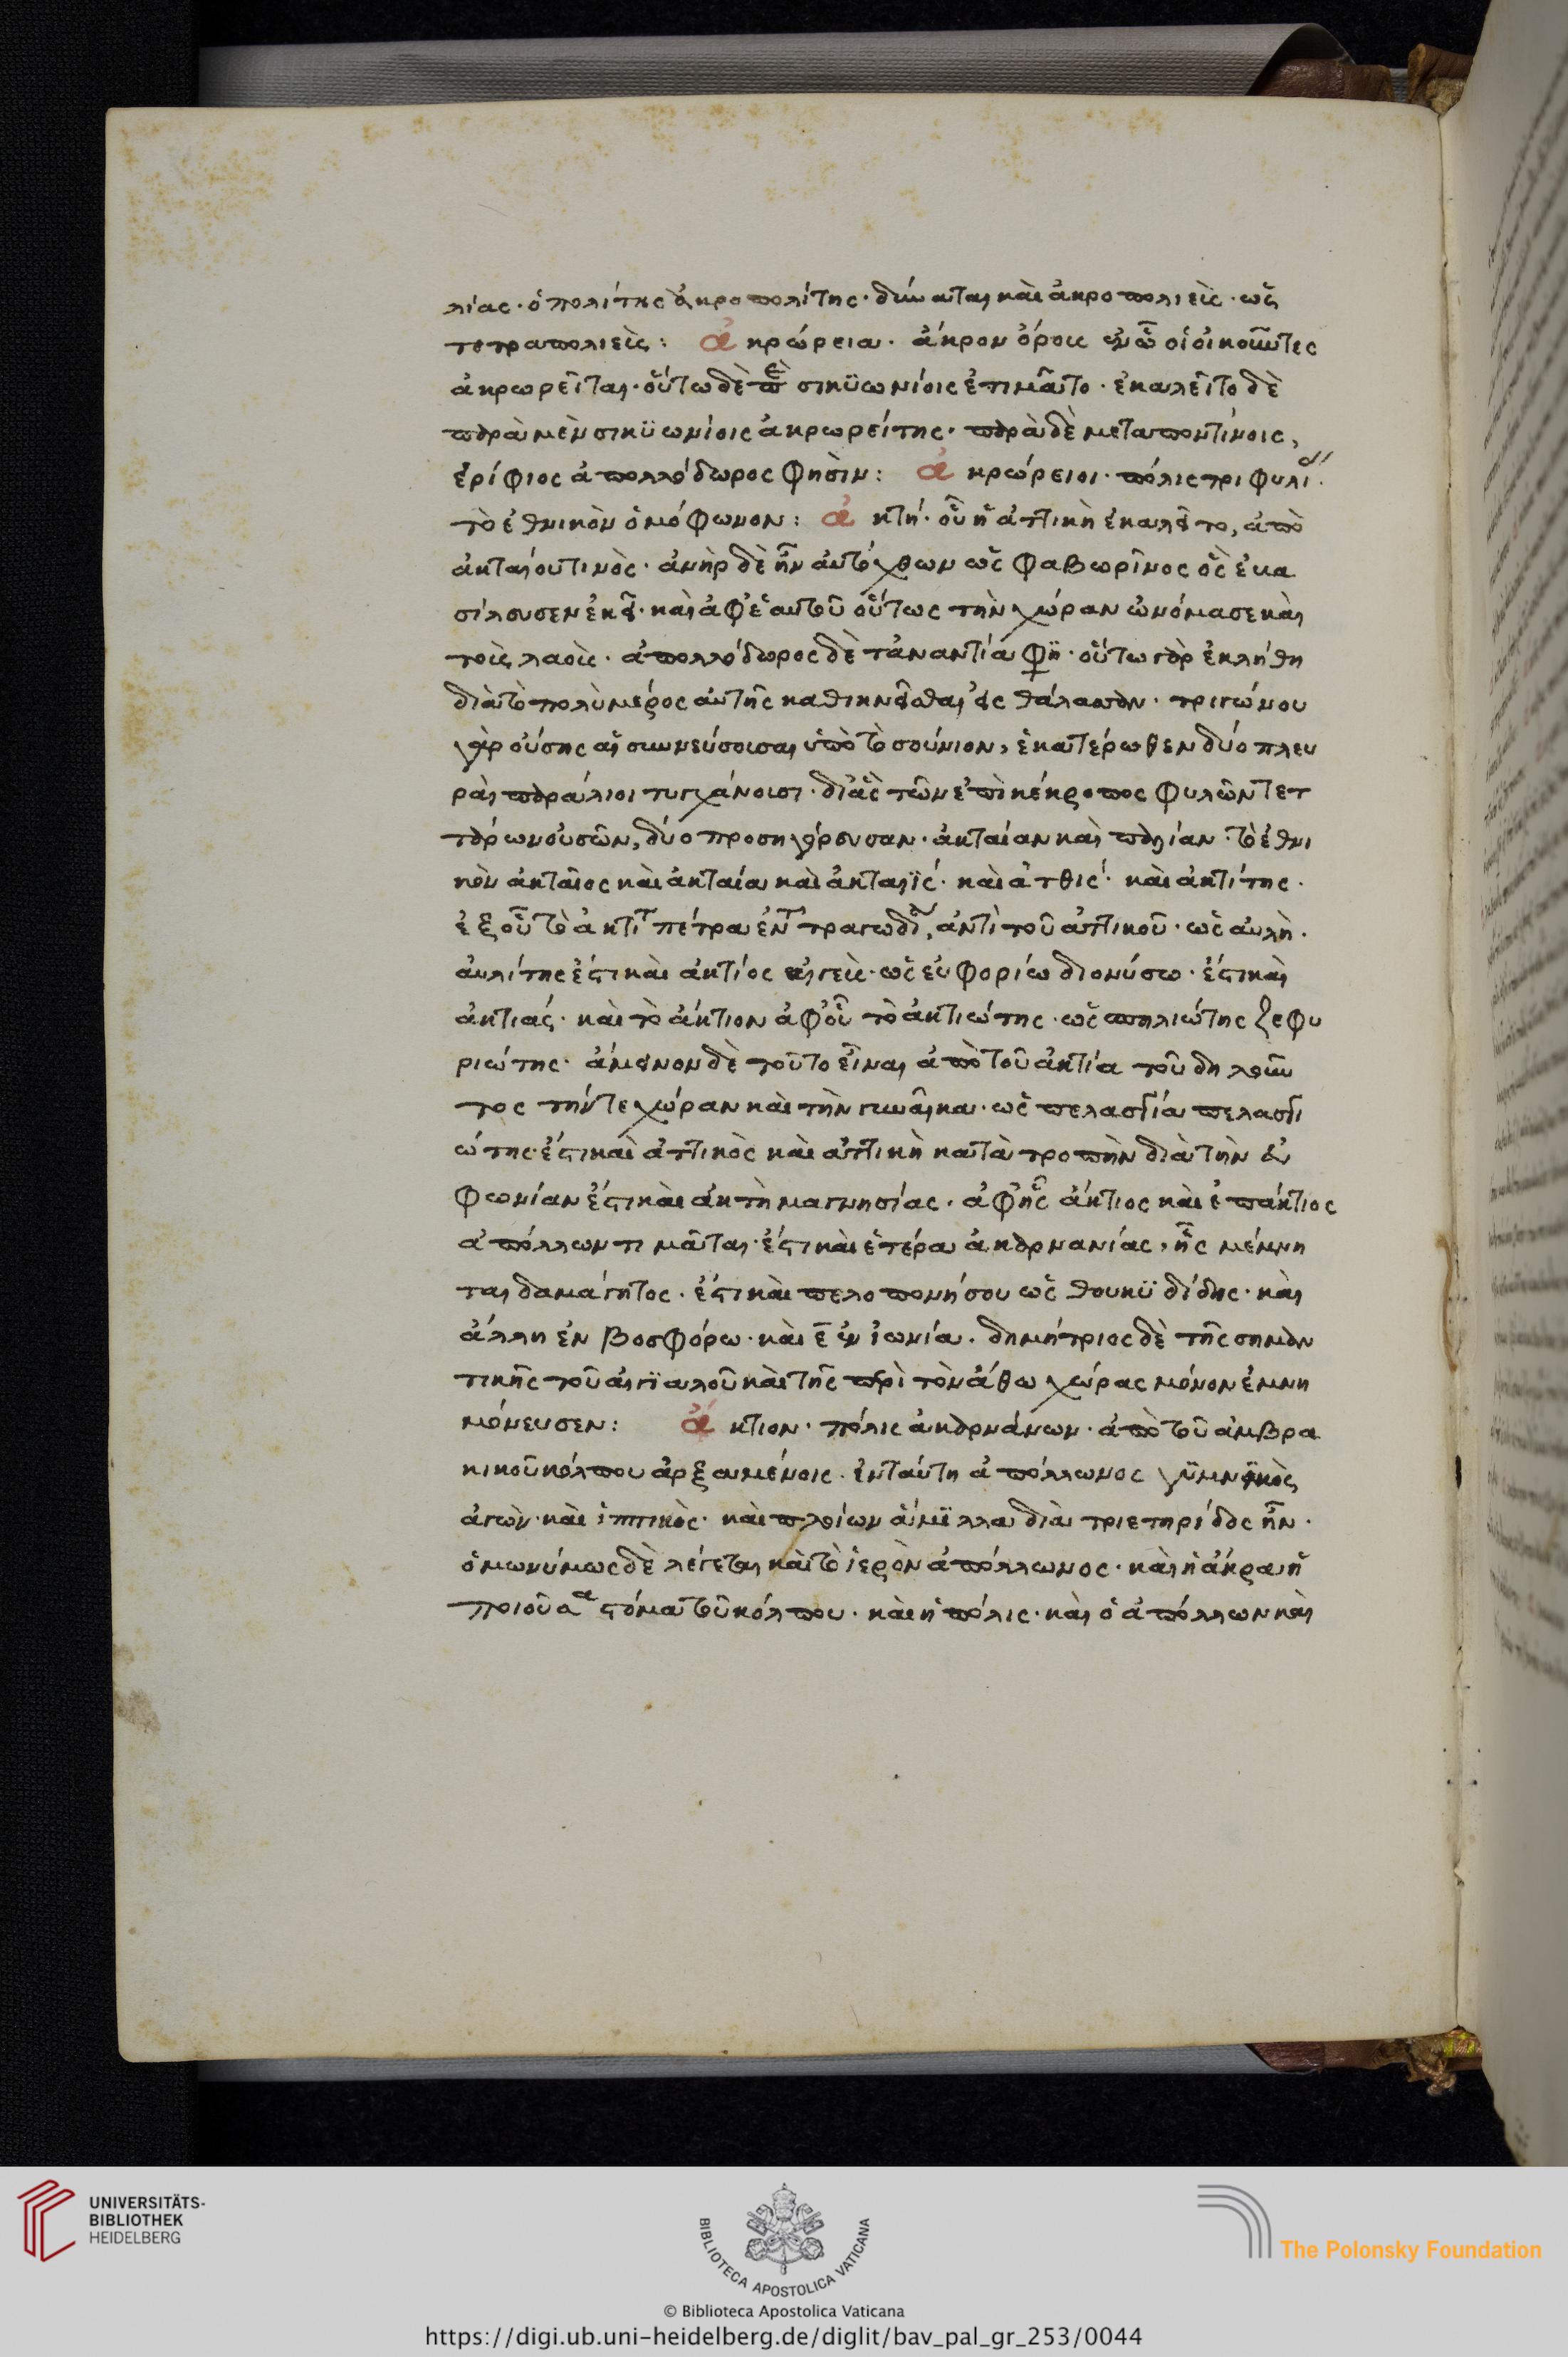 λίας· ὁ πολίτης ἀκροπολίτης· δύναται καὶ ἀκροπολιεῖς· ὡς
τετραπολιεῖς: ἀκρώρεια· ἄκρον ὄρους ἐν ᾧ οἱ οἰκοῦντες
ἀκρωρεῖται· οὕτω δὲ σικϋωνίοις ἐτιμᾶτο· ἐκαλεῖτο δὲ
παρὰ μὲν σικϋωνίοις ἀκρωρείτης· παρὰ δὲ μεταποντίνοις,
ἐρίφιος ἀπολλόδωρος φησὶν: ἀκρώρειοι· πόλις τριφυλί
τὸ ἐθνικὸν ὁμόφωνον: ἀκτή· οὗ ἡ ἀττικὴ ἐκαλεῖτο, ἀπὸ
ἀκταίου τινὸς· ἀνὴρ δὲ ἦν αὐτόχθων ὡς φαβωρῖνος ὃς ἐβα
σίλευσεν ἐκεῖ· καὶ ἀφ' ἑαυτοῦ οὕτως τὴν χώραν ὠνόμασε καὶ
τοῖς λαοῖς· ἀπολλόδωρος δὲ τἀναντία φη· οὕτω γὰρ ἐκλήθη
διὰ τὸ πολὺ μέρος αὐτῆς καθικνεῖσθαι εἰς θάλασσαν· τριγώνου
γὰρ οὔσης αἱ συννεύουσαι ὑπὸ τὸ σούνιον, ἑκατέρωθεν δύο πλευ
ραὶ παράλιοι τυγχάνουσι· δι' ἃς τῶν ἐπὶ κέκροπος φυλῶν τετ
τάρων οὐσῶν, δύο προσηγόρευσαν· ἀκταίαν καὶ παραλίαν· τὸ ἐθνι
κὸν ἀκταῖος καὶ ἀκταία καὶ ἀκταιΐς· καὶ ἀτθίς· καὶ ἀκτίτης·
ἐξ οὗ τὸ ἀκτίτ πέτρα ἐν τραγωδί, ἀντὶ τοῦ ἀττικοῦ· ὡς αὐλὴ·
αὐλίτης ἔστι καὶ ἄκτιος αἰγεῖς· ὡς εὐφορίω διονύσω· ἔστι καὶ
ἀκτιάς· καὶ τὸ ἄκτιον ἀφ' οὗ τὸ ἀκτιώτης· ὡς πηλιώτης ζεφυ
ριώτης· ἄμεινον δὲ τοῦτο εἶναι ἀπὸ τοῦ ἀκτία τοῦ δηλοῦν
τος τήν τε χώραν καὶ τὴν γυναῖκα· ὡς πελασγία πελασγι
ώτης· ἔστι καὶ ἀττικὸς καὶ ἀττικὴ κατὰ τροπὴν διὰ τὴν εὐ
φωνίαν ἔστι καὶ ἀκτὴ μαγνησίας· ἀφ' ἧς ἄκτιος καὶ ἐπάκτιος
ἀπόλλων τιμᾶται· ἔστι καὶ ἑτέρα ἀκαρνανίας, ἧς μέμνη
ται δαμάγητος· ἔστι καὶ πελοπονήσου ὡς θουκϋδίδης· καὶ
ἄλλη ἐν βοσφόρω· καὶ ε̄ ἐν ἰωνία· δημήτριος δὲ τῆς σημαν
τικῆς τοῦ αἰγϊαλοῦ καὶ τῆς περὶ τὸν ἄθω χώρας μόνον ἐμνη
μόνευσεν: ἄκτιον· πόλις ἀκαρνάνων· ἀπὸ τοῦ ἀμβρα
κικοῦ κόλπου ἀρξαμένοις· ἐνταύτη ἀπόλλωνος γϋμνικὸς
ἀγὼν· καὶ ἱππικὸς· καὶ πλοίων ἅμϊλλα διὰ τριετηρίδος ἦν·
ὁμωνύμως δὲ λέγεται καὶ τὸ ἱερὸν ἀπόλλωνος· καὶ ἡ ἄκρα ἡ
ποιοῦσα στόμα τοῦ κόλπου· καὶ ἡ πόλις· καὶ ὁ ἀπόλλων καὶ
UNIVERSITÄTS-
BIBLIOTHEK
HEIDELBERG
BIBLIOTECA APOSTOLICA VATICANA
The Polonsky Foundation
© Biblioteca Apostolica Vaticana
https://digi.ub.uni-heidelberg.de/diglit/bav_pal_gr_253/0044